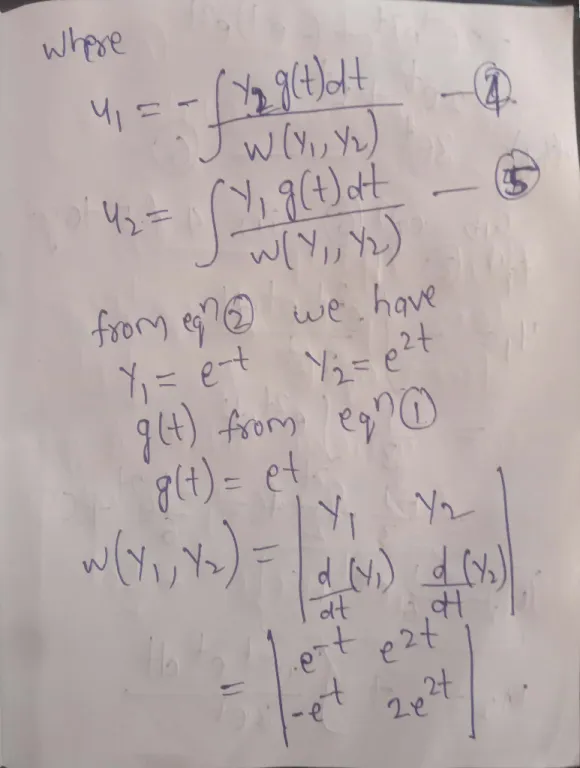 where
u₁ = - ∫ Y₂ g(t)dt / W(Y₁, Y₂) — ④
u₂ = ∫ Y₁ g(t)dt / W(Y₁, Y₂) — ⑤
from eqⁿ ② we have
Y₁ = e^-t Y₂ = e^2t
g(t) from eqⁿ ①
g(t) = et
W(Y₁, Y₂) = | Y₁ Y₂ |
| d/dt (Y₁) d/dt (Y₂) |
= | e^-t e^2t |
| -e^t 2e^2t |